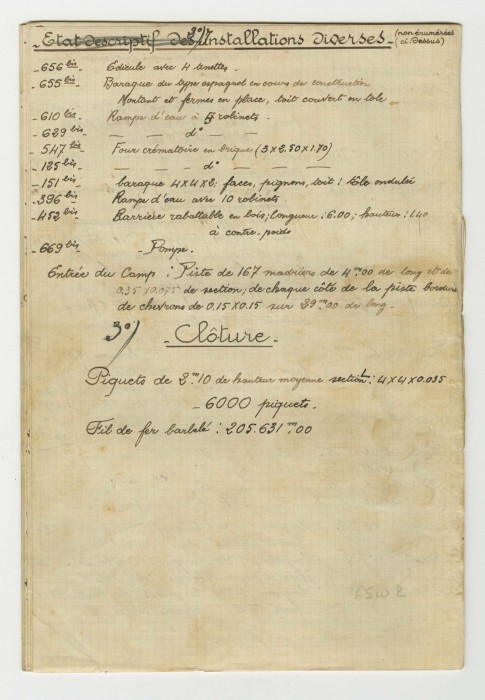 3°/
Etat descriptif des Installations Diverses. (non énumérées ci-dessus)
- 656 bis - Edicule avec 4 tinettes -
- 655 bis - Baraque du type espagnol en cours de construction
Montant et fermes en place, toit couvert en tôle -
- 610 bis - Rampe d'eau à 5 robinets -
- 629 bis - — — — d° — —
- 547 bis - Four crématoire en brique (3 x 2.50 x 1.70)
- 125 bis - — — — d° — — — —
- 151 bis - baraque 4 x 4 x 2; faces, pignons, toit: tôle ondulée
- 396 bis - Rampe d'eau avec 10 robinets -
- 452 bis - Barrière rabattable en bois; longueur: 6.00; hauteur: 1.40
à contre-poids
- 669 bis - - Pompe. -
Entrée du Camp : Piste de 167 madriers de 4m00 de long et de
0.35 x 0.075 de section; de chaque côté de la piste bordure
de chevrons de 0.15 x 0.15 sur 39m00 de long -
3°/ - Clôture -
Piquets de 2m10 de hauteur moyenne section L: 4 x 4 x 0.035
- 6000 piquets -
Fil de fer barbelé : 205.631m00
65W2